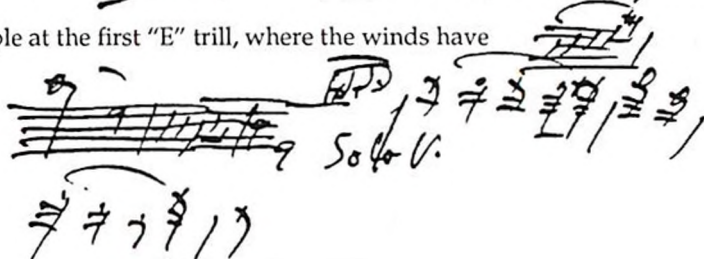 le at the first “E” trill, where the winds have
Solo V.